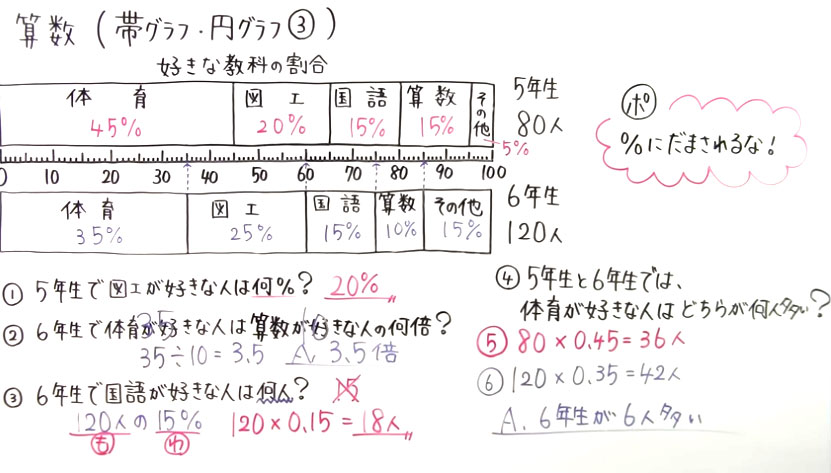 算数(帯グラフ・円グラフ③)
好きな教科の割合
体育 図工 国語 算数 その他 5年生
45% 20% 15% 15% 5% 80人
0 10 20 30 40 50 60 70 80 90 100
体育 図工 国語 算数 その他 6年生
35% 25% 15% 10% 15% 120人
ポ
%にだまされるな!
① 5年生で図工が好きな人は何%? 20%
② 6年生で体育が好きな人は算数が好きな人の何倍?
35 10
35÷10=3.5 A. 3.5倍
③ 6年生で国語が好きな人は何人? 15
120人の15% 120×0.15=18人
も わ
④ 5年生と6年生では、
体育が好きな人はどちらが何人多い?
⑤ 80×0.45=36人
⑥ 120×0.35=42人
A. 6年生が6人多い